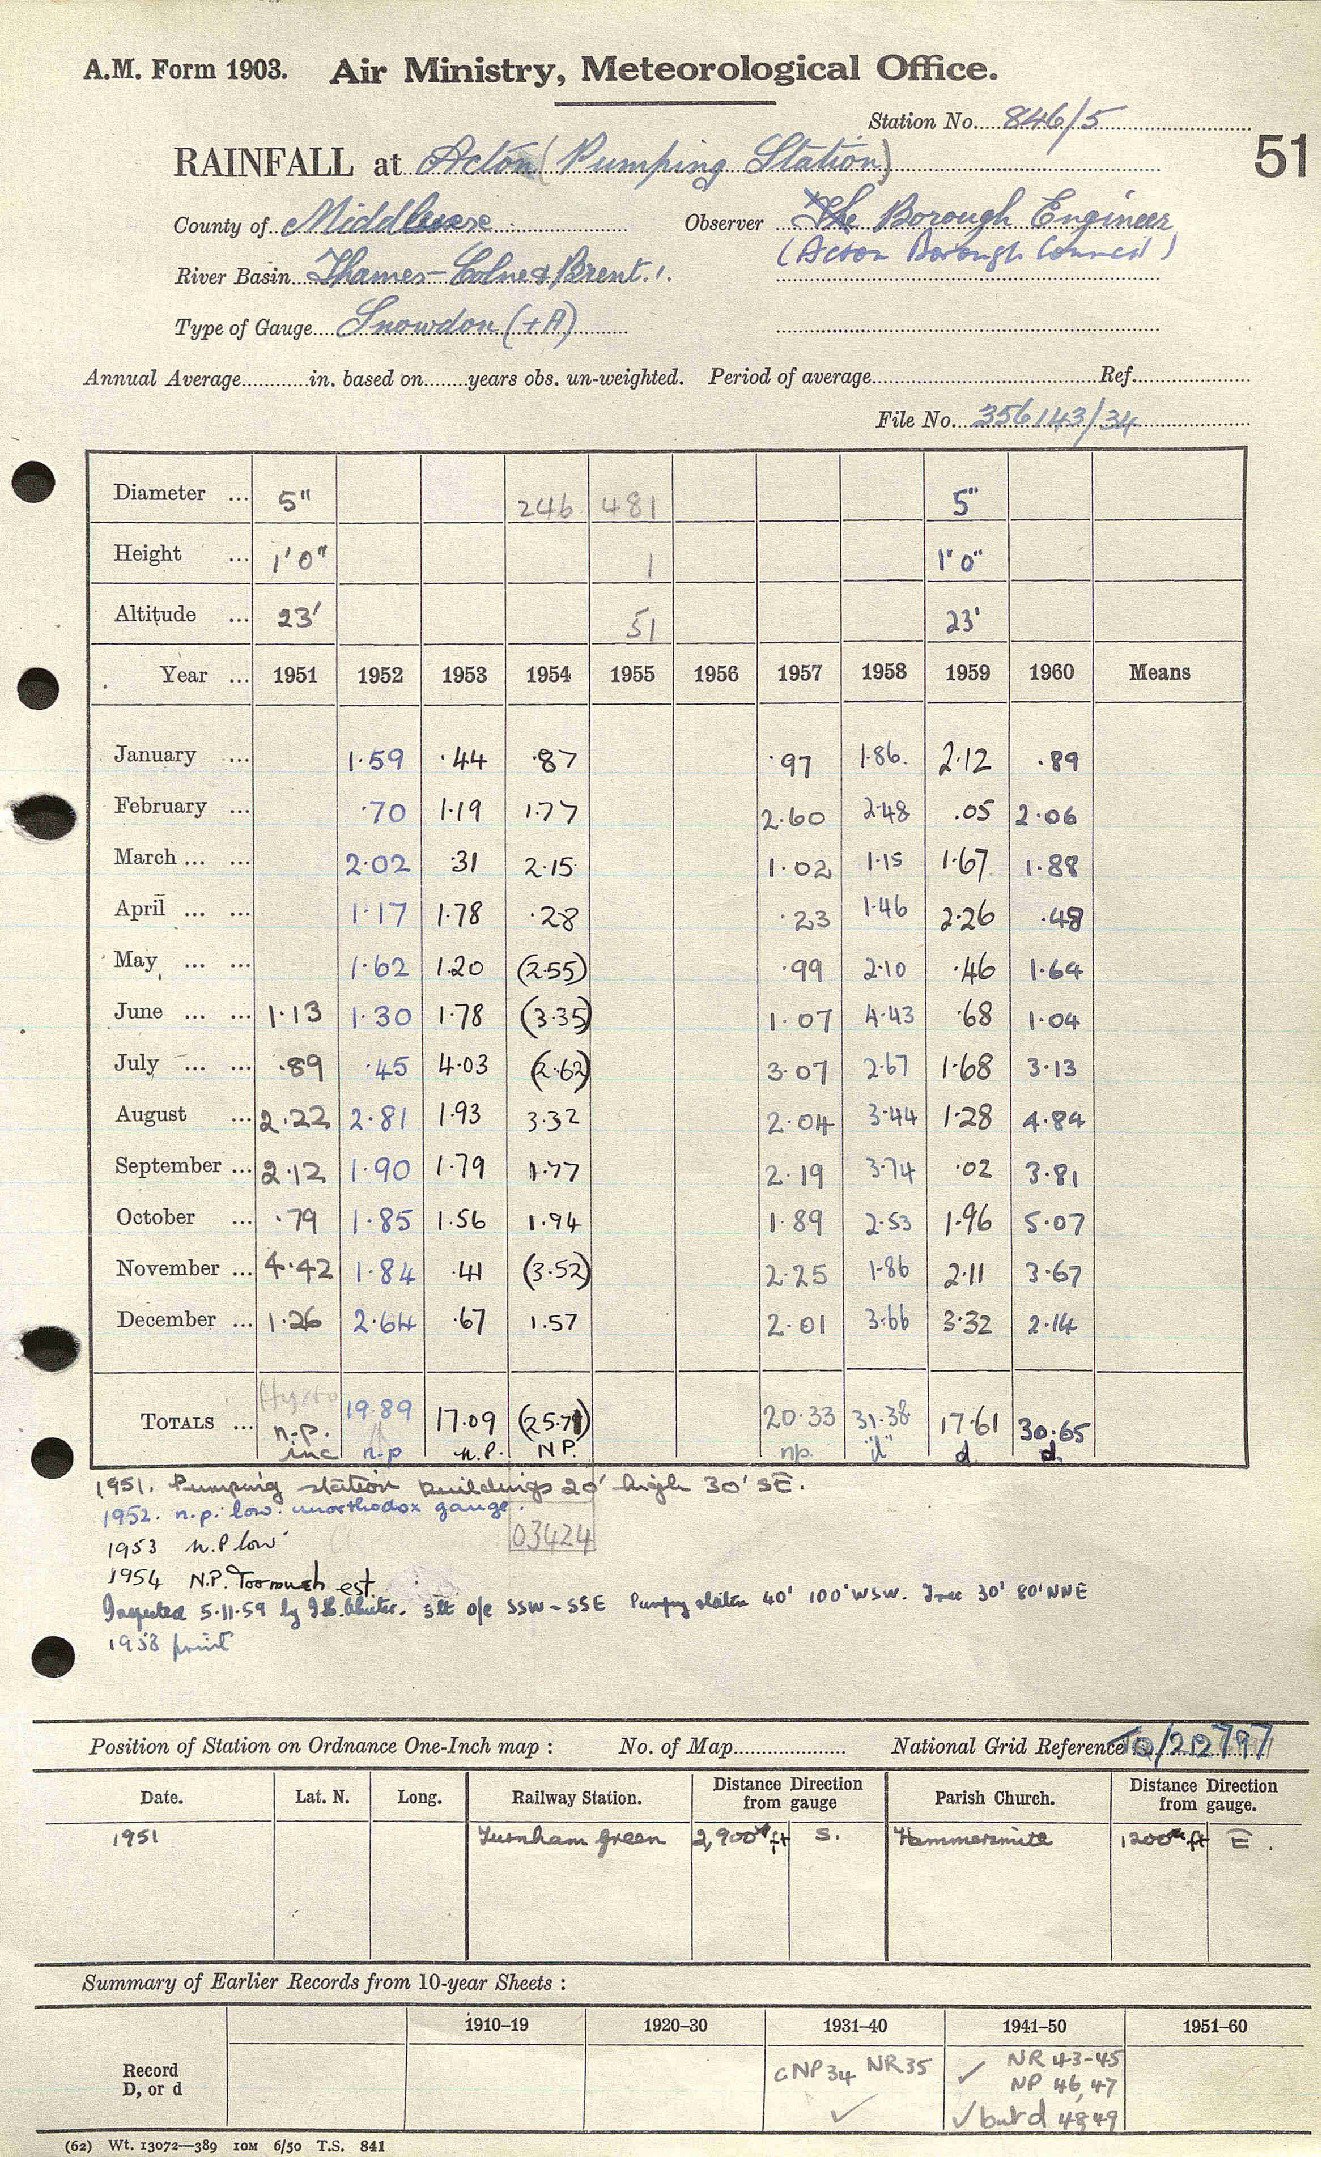 A.M. Form 1903. Air Ministry, Meteorological Office.
Station No. 846/5
51
RAINFALL at Acton (Pumping Station)
County of Middlesex
Observer The Borough Engineer
(Acton Borough Council)
River Basin Thames - Colne & Brent.
Type of Gauge Snowdon (+A)
Annual Average in. based on years obs. un-weighted. Period of average Ref.
File No. 356143/34
Diameter ... 5" 246 481 5"
Height ... 1'0" 1 1"0"
Altitude ... 23' 51 23'
Year ... 1951 1952 1953 1954 1955 1956 1957 1958 1959 1960 Means
January ... 1.59 .44 .87 .97 1.86. 2.12 .89
February ... .70 1.19 1.77 2.60 2.48 .05 2.06
March ... ... 2.02 .31 2.15 1.02 1.15 1.67 1.88
April ... ... 1.17 1.78 .28 .23 1.46 2.26 .48
May ... ... 1.62 1.20 (2.55) .99 2.10 .46 1.64
June ... ... 1.13 1.30 1.78 (3.35) 1.07 4.43 .68 1.04
July ... ... .89 .45 4.03 (2.62) 3.07 2.67 1.68 3.13
August ... 2.22 2.81 1.93 3.32 2.04 3.44 1.28 4.84
September ... 2.12 1.90 1.79 1.77 2.19 3.74 .02 3.81
October ... .79 1.85 1.56 1.94 1.89 2.53 1.96 5.07
November ... 4.42 1.84 .41 (3.52) 2.25 1.86 2.11 3.67
December ... 1.26 2.64 .67 1.57 2.01 3.66 3.32 2.14
TOTALS ... 19.89 17.09 (25.71) 20.33 31.38 17.61 30.65
n.p. inc n.p n.P. N.P. np. "d" d d.
1951. Pumping station buildings 20' high 30' SE.
1952. n.p. low. unorthodox gauge.
03424
1953 N.P low
1954 N.P. Too much est.
Inspected 5.11.59 by o/e SSW - SSE Pumping station 40' 100' WSW. Tree 30' 80' NNE
1958 print
Position of Station on Ordnance One-Inch map : No. of Map National Grid Reference TQ/212797
Date. Lat. N. Long. Railway Station. Distance Direction from gauge Parish Church. Distance Direction from gauge.
1951 Turnham Green 2,900 ft S. Hammersmith 1200 ft E.
Summary of Earlier Records from 10-year Sheets :
1910–19 1920–30 1931–40 1941–50 1951–60
Record D, or d
NP34 NR35 ✓
✓ NR 43-45
NP 46,47
✓ but d 48,49
(62) Wt. 13072—389 10M 6/50 T.S. 841